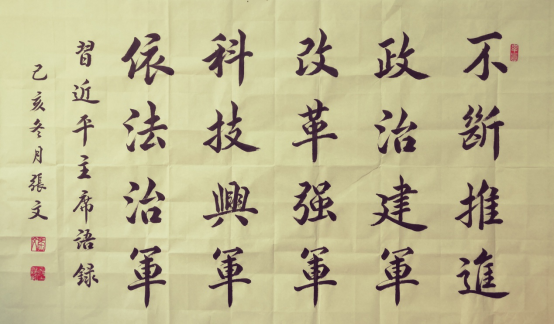 不斷推進
政治建軍
改革强軍
科技興軍
依法治軍
習近平主席語録
己亥冬月張文